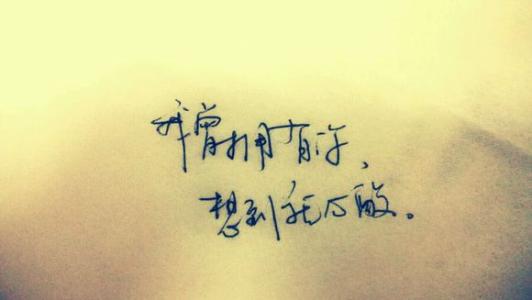 我曾拥有你，
想到我心酸。